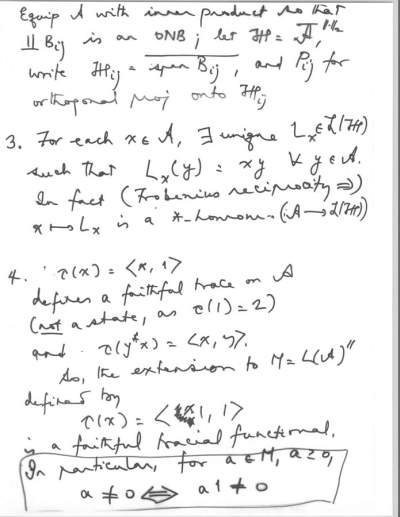 Equip A with inner product so that
∐ Bij is an ONB ; let ℋ = Ā^‖·‖₂ ,
write ℋij = span Bij , and Pij for
orthogonal proj onto ℋij
3. For each x ∈ A, ∃ unique Lx ∈ ℒ(ℋ)
such that Lx(y) = xy ∀ y ∈ A.
In fact (Frobenius reciprocity ⇒)
x ↦ Lx is a *-homom. (A → ℒ(ℋ))
4. τ(x) = ⟨x, 1⟩
defines a faithful trace on A
(not a state, as τ(1) = 2)
and τ(y*x) = ⟨x, y⟩.
So, the extension to M = L(A)″
defined by
τ(x) = ⟨x1, 1⟩
is a faithful tracial functional.
In particular, for a ∈ M, a ≥ 0,
a ≠ 0 ⇔ a1 ≠ 0